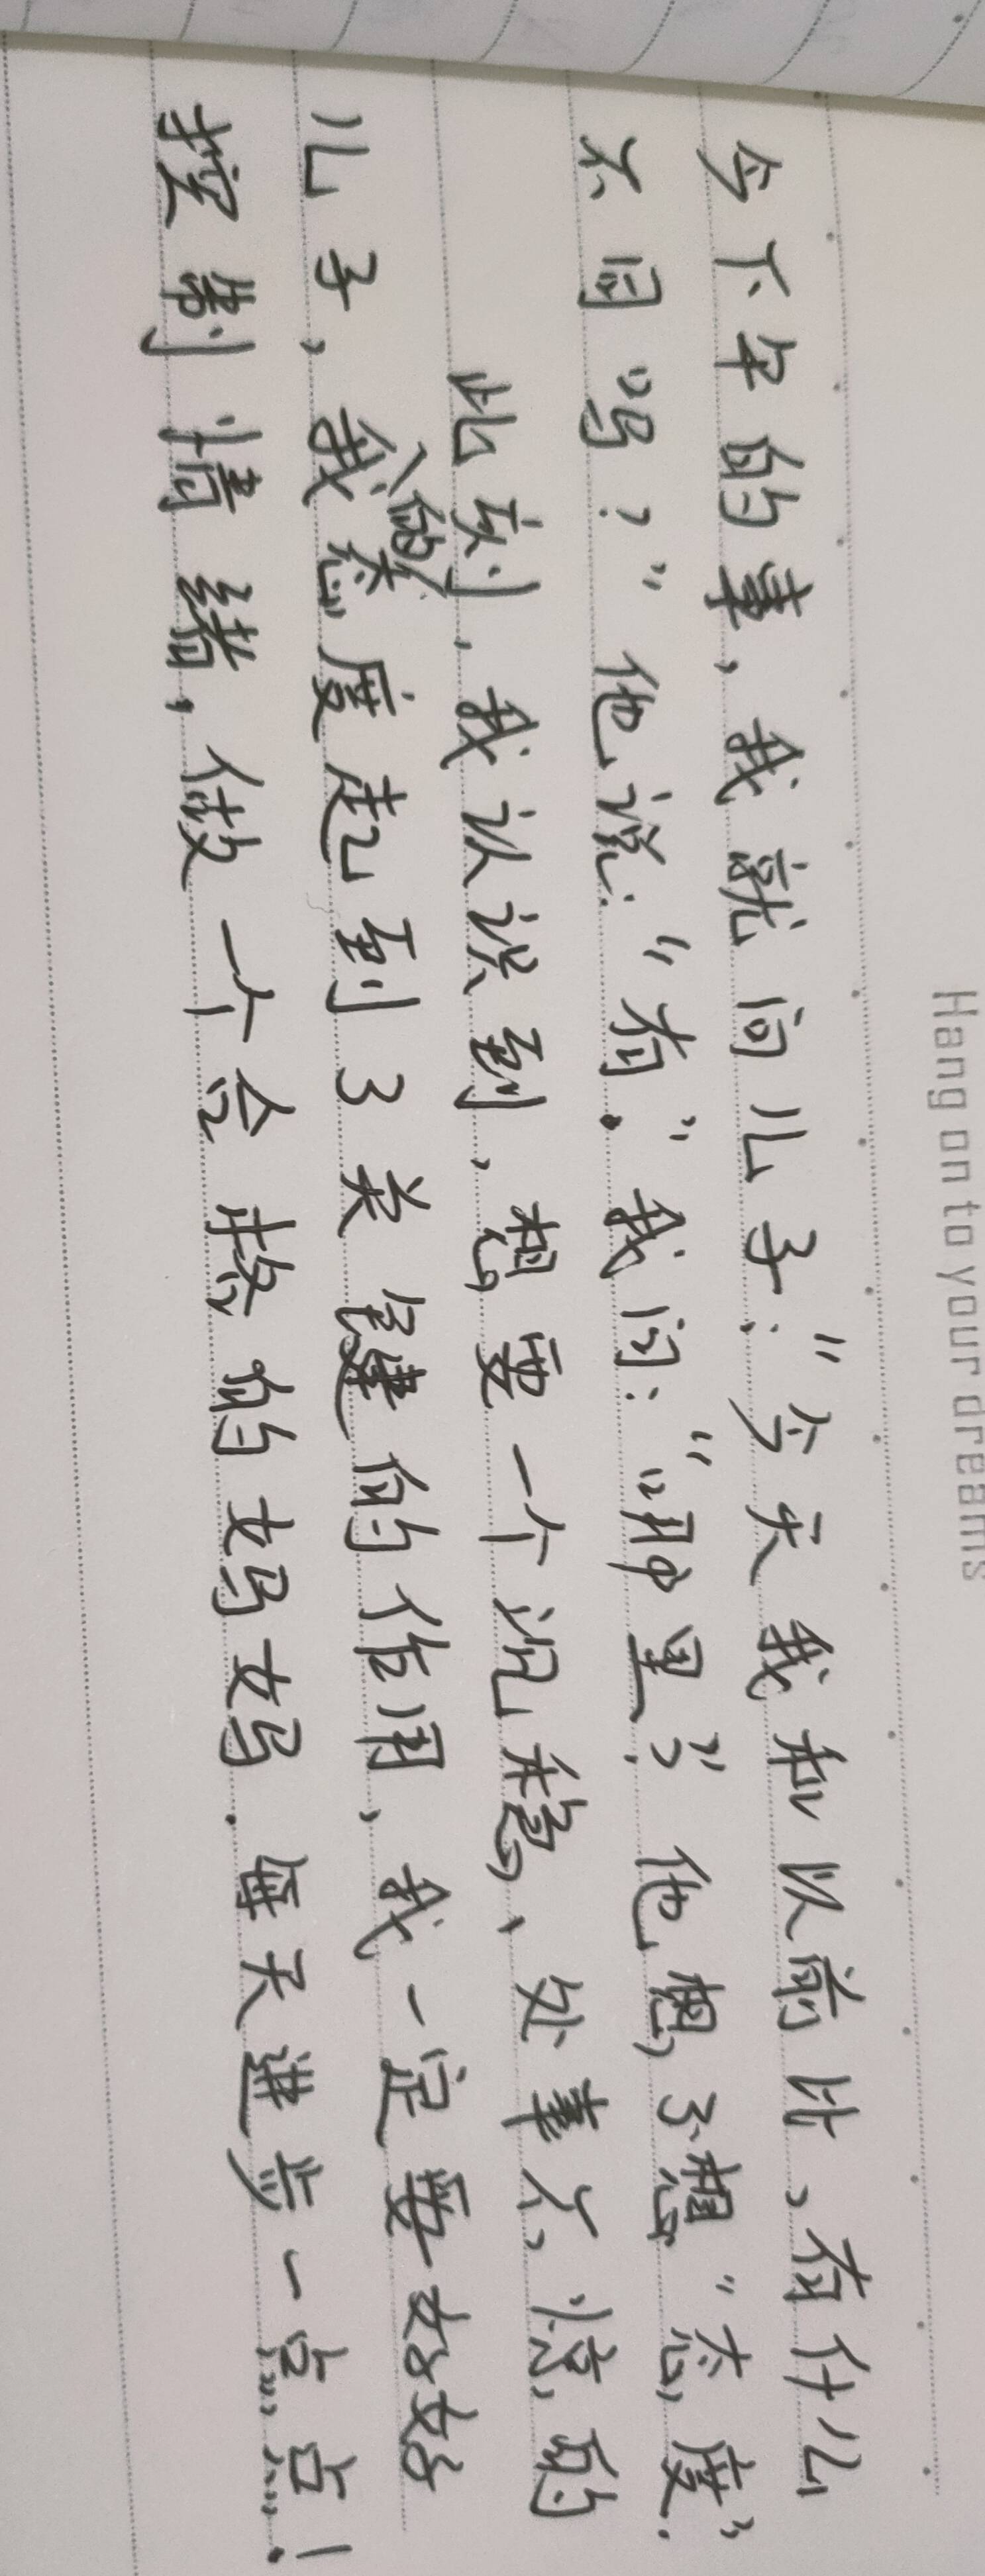 Hang on to your dreams
今下午的事，我就问儿子：“今天我和以前比、有什么
不同吗？”他说：“有。”我问：“哪里？”他想了想“态度”.
此刻，我认识到、想要一个沉稳、处事不惊的
儿子，我的态度起到了关键的作用、我一定要好好
控制情绪，做一个会转的妈妈．每天进步一点点！